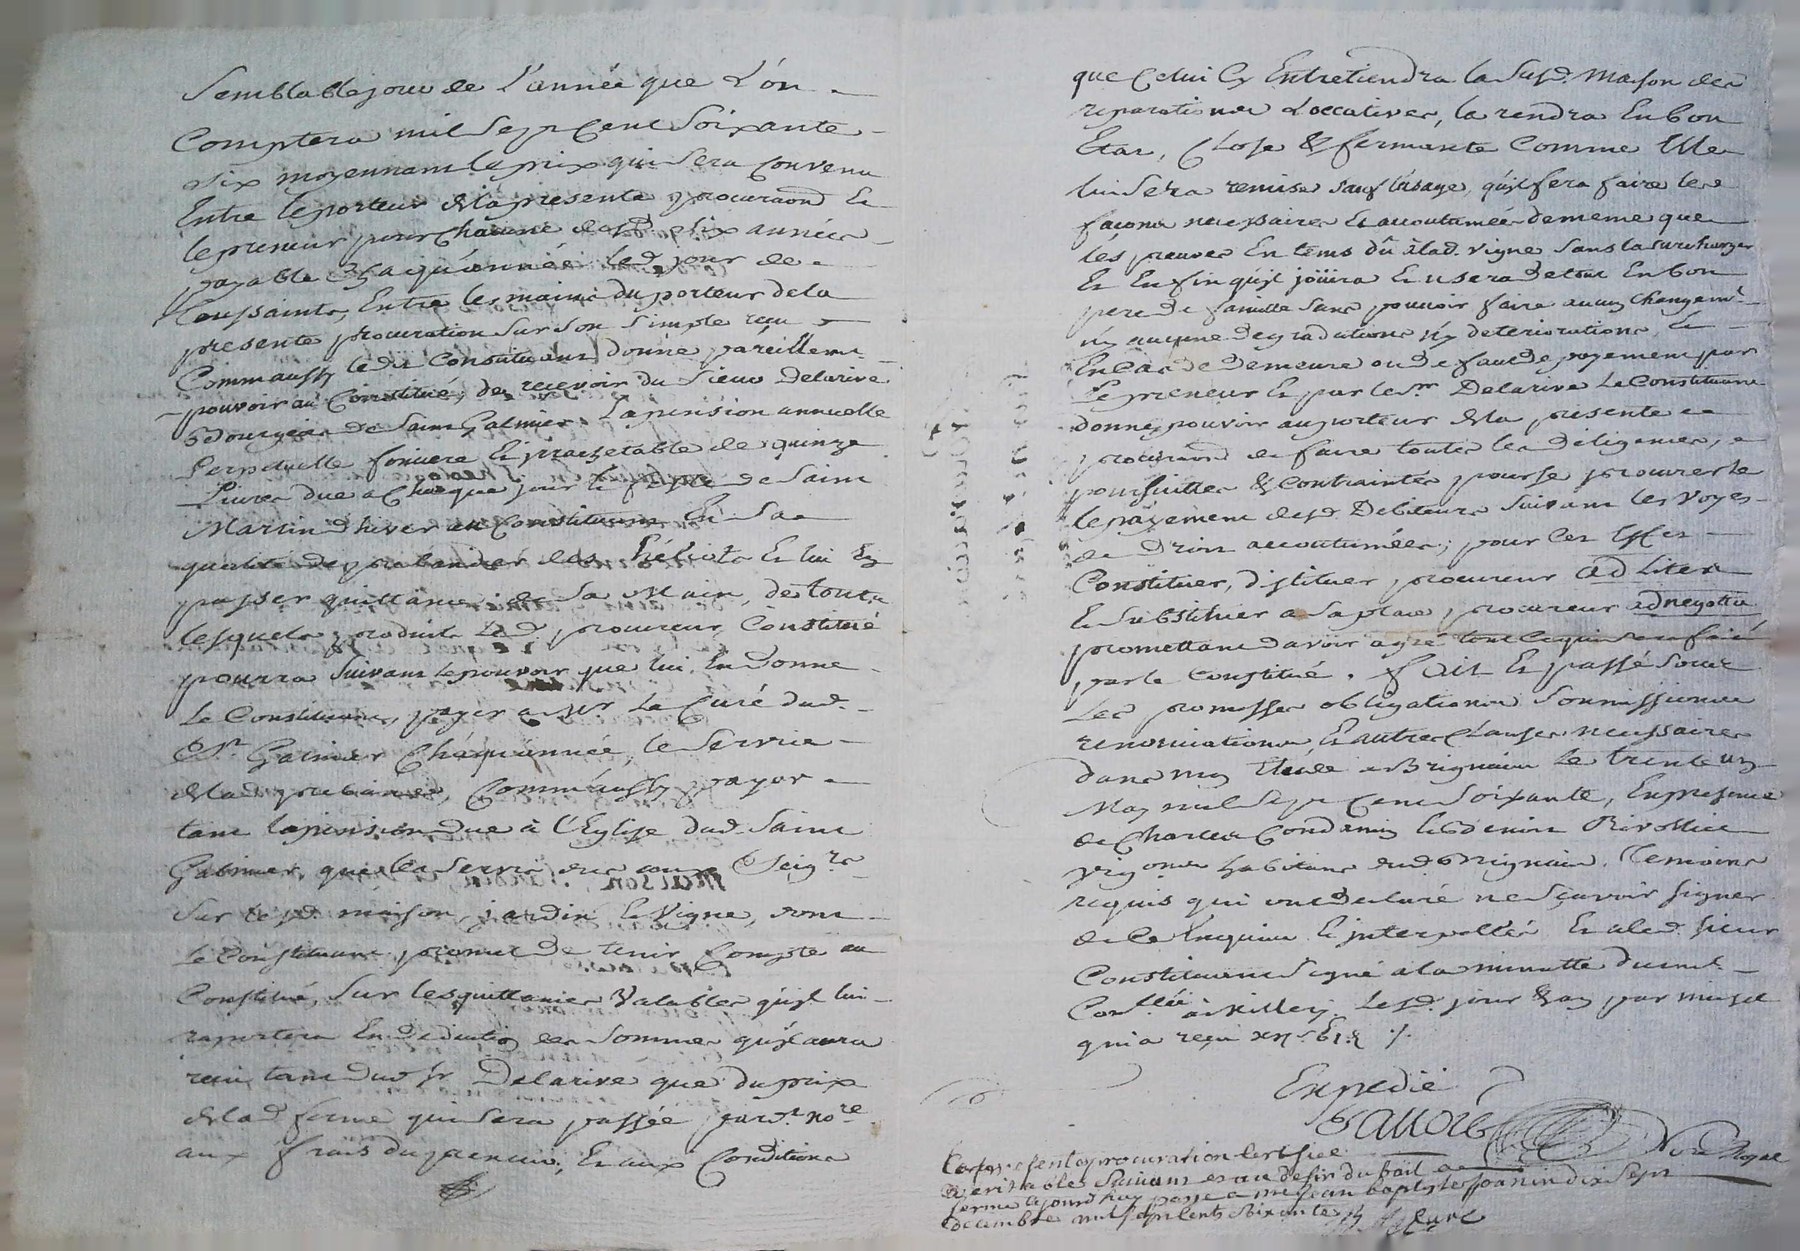 Semblable jour de l'année que l'on
Comptera mil sept Cent Soixante
Six moyennant le prix qui sera Convenu
Entre le porteur de la presente procuraon Et
le preneur pour Chacune desd. Six années
payable Chaqu'année led. jour de
Toussaints, Entre les mains du porteur de la
presente procuration sur son simple reçu
Comm'aussy ledit Constituant donne pareillement
pouvoir au Constitué, de recevoir du Sieur Delarive
Bourgeois de Saint Galmier La pension annuelle
Perpetuelle fonciere Et rachetable de quinze
Livres due a Chaque jour Et feste de Saint
Martin d'hiver au Constituant En Sa
qualité de prebandier des Et lui En
passer quittance de Sa Main, de tous
lesquels produits led. procureur Constitué
pourra Suivant le pouvoir que lui En donne
Le Constituant, payer a Mr Le Curé dud.
St Galmier Chaqu'année, le Service
de lad. prebande, Comm'aussy payer
tant la pension due à l'Eglise dud. Saint
Galmier, que les servis dus aux Seigrs
Sur lesd. maison, jardin Et Vigne, dont
Le Constituant promet de tenir Compte au
Constitué, Sur les quittances Valables qu'il lui
raportera En deduction des Sommes qu'il aura
reçu tant dud. Sr Delarive que du prix
de lad. ferme qui sera passée par dt nore
aux frais du preneur, Et aux Conditions
que Celui Cy Entretiendra la Susd. Maison des
reparations Loccatives, la rendra En bon
Etat, Close & fermente Comme Elle
lui Sera remise sauf l'usage, qu'il fera faire les
façons necessaires Et accoutumées de meme que
les preuves En tems dû à lad. Vigne sans la surcharger
Et Enfin qu'il joüira Et usera de tout En bon
pere de famille sans pouvoir faire aucun Changemt
ny aucune degradations ny deteriorations, Et
En Cas de Demeure ou de faute de payement par
Le preneur Et par le Sr Delarive Le Constituant
donne pouvoir au porteur de la presente
procuraon de faire toutes les diligences,
poursuittes & Contraintes pour se procurer le
le payement desd. Debiteurs Suivant les Voyes
de Droit accoutumées; pour Ces Effets
Constituer, distituer, procureur ad Lites
Et substituer a sa place, procureur ad negotia
promettant d'avoir agré tout ce qui sera fait
par le Constitué. fait Et passé sous
Les promesses obligations Soumissions
renonciations Et autres Clauses necessaires
dans mon Etude a Brignais Le trente un
May mil Sept Cent Soixante, En presence
de Charles Condamin Et Denis Rivollier
Vignerons habitans dud. Brignais, Temoins
requis qui ont declaré ne sçavoir signer
de Ce Enquis Et interpellés Et a led. sieur
Constituant Signé a la minutte dument
Conllée à Millery Lesd. jour & an par
qui a reçu
Expedié
Nore Royal
La presente procuration Certifiée
Veritable Suivant et au desir du bail a
ferme aujourd'huy passé a me jean baptiste joanin dix sept
decembre mil sept Cents Soixante